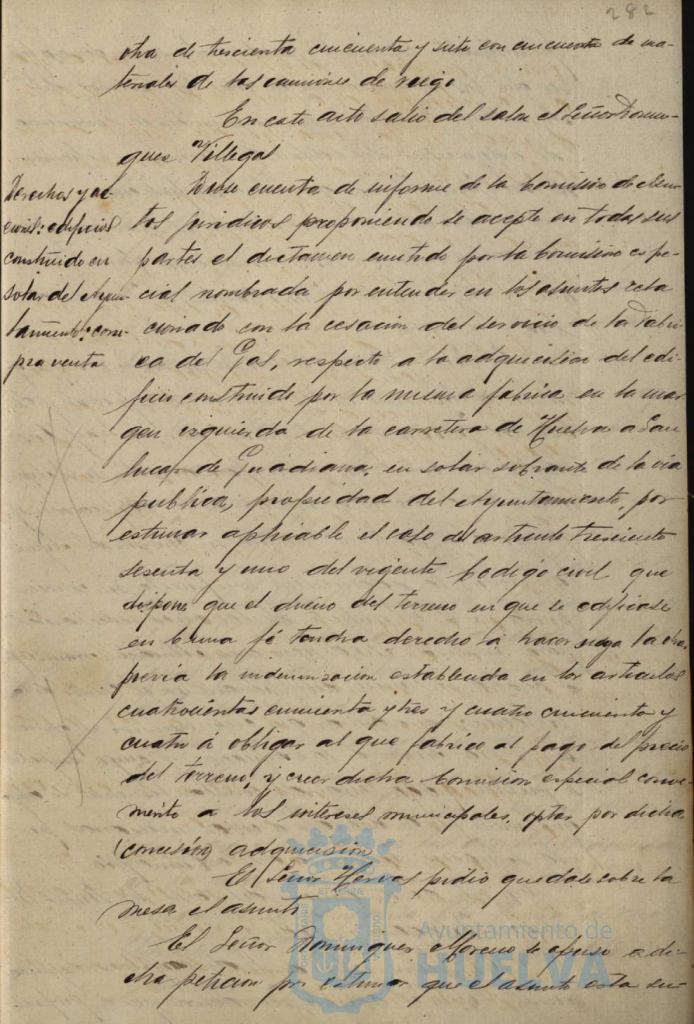 282
otra de trescienta cincuenta y siete con cincuenta de ma-
teriales de los camiones de riego
En este acto salio del salon el Señor Domin-
guez Villegas
Derechos y ac-
ciones: edificio
construido en
solar del Ayun-
tamiento: com-
pra venta
Diose cuenta de informe de la Comision de Asun-
tos juridicos proponiendo se acepte en todas sus
partes el dictamen emitido por la Comision espe-
cial nombrada por entender en los asuntos rela
cionado con la cesacion del servicio de la Fabri-
ca del Gas, respecto a la adquisicion del edi-
ficio construido por la misma fabrica en la mar-
gen izquierda de la carretera de Huelva a San
lucar de Guadiana, en solar sobrante de la via
publica, propiedad del Ayuntamiento, por
estimar aplicable el caso del articulo trescientos
sesenta y uno del vigente Codigo civil que
dispone que el dueño del terreno en que se edificase
en buena fé tendra derecho á hacer suya la obra
previa la indemnizacion establecida en los articulos
cuatrocientos cincuenta y tres y cuatro cincuenta y
cuatro á obligar al que fabrico al pago del precio
del terreno, y creer dicha Comision especial conve-
niente a los intereses municipales, optar por dicha
(concesion) adquisicion
El Señor Hervas pidio quedase sobre la
mesa el asunto
El Señor Dominguez Moreno se opuso a di-
cha peticion por estimar que el asunto esta su-
Ayuntamiento de
HUELVA